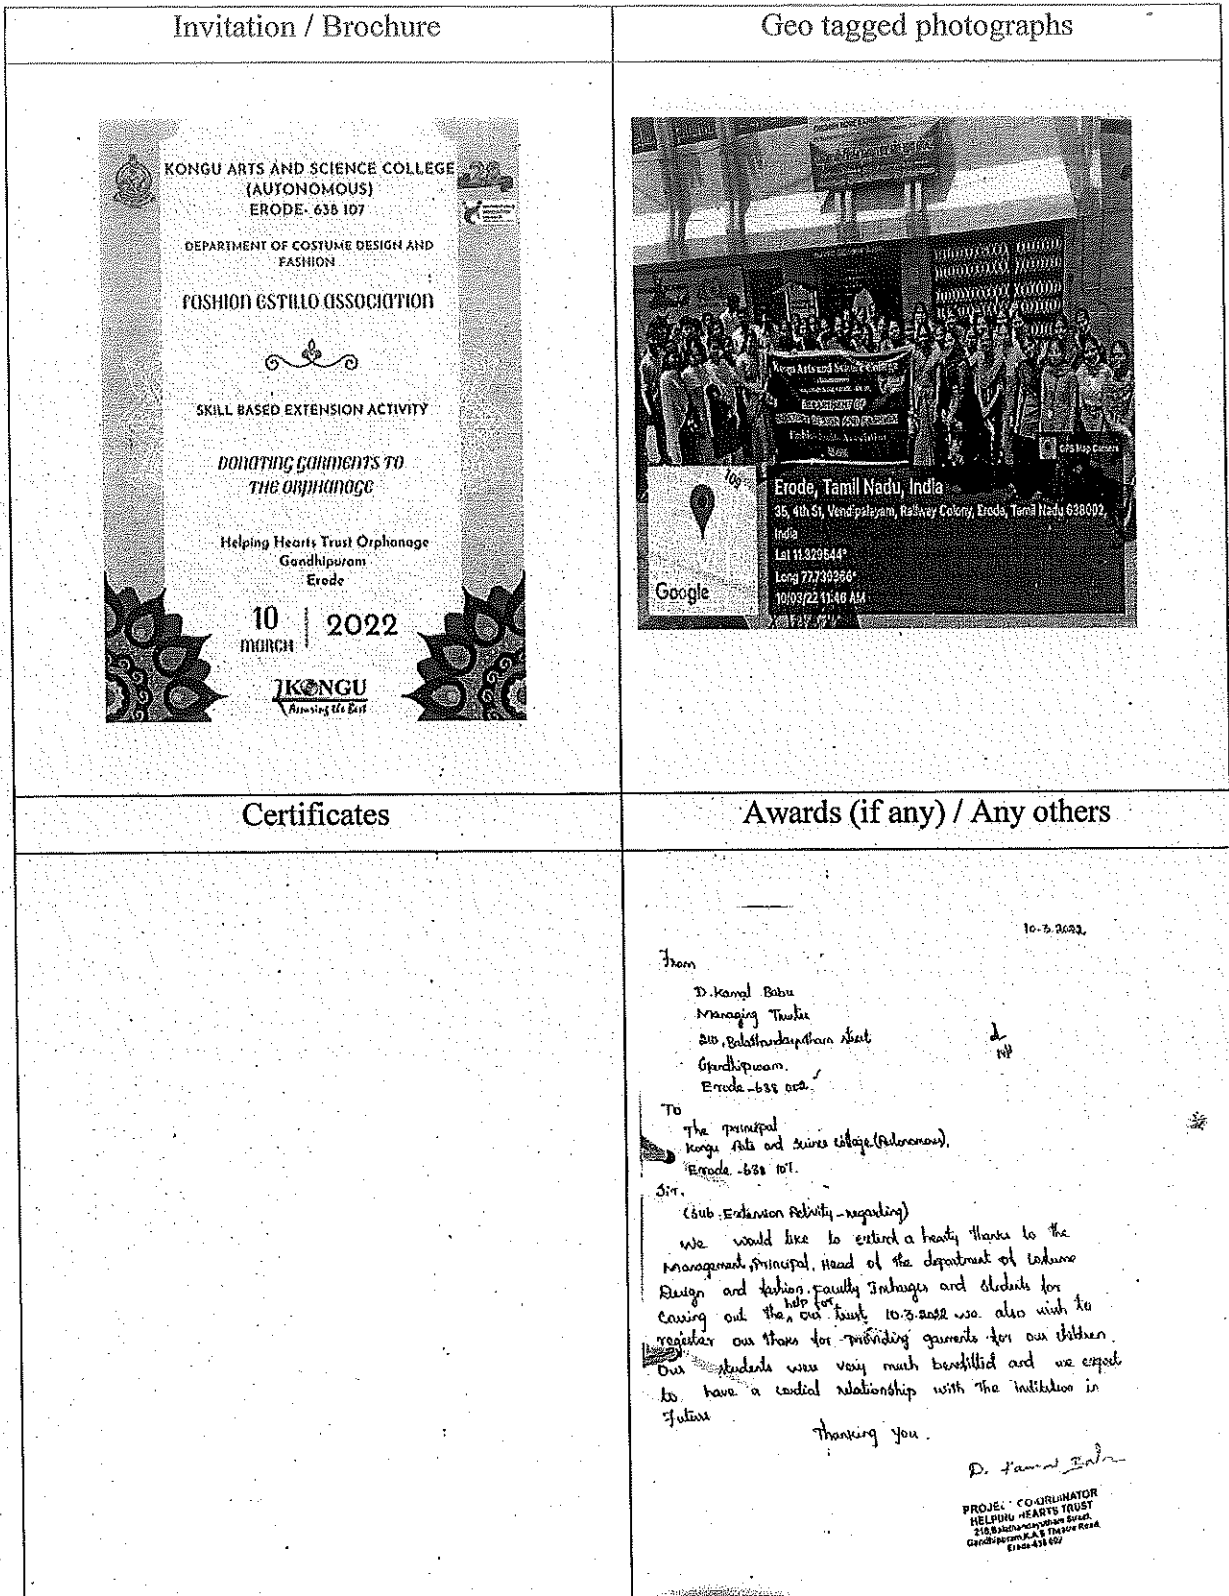 Invitation / Brochure
Geo tagged photographs
KONGU ARTS AND SCIENCE COLLEGE
(AUTONOMOUS)
ERODE- 638 107
DEPARTMENT OF COSTUME DESIGN AND
FASHION
FASHION ESTILLO ASSOCIATION
SKILL BASED EXTENSION ACTIVITY
DONATING GARMENTS TO
THE ORPHANAGE
Helping Hearts Trust Orphanage
Gandhipuram
Erode
10
MARCH
2022
KONGU
Assuring the Best
Kongu Arts and Science College
DEPARTMENT OF
COSTUME DESIGN AND FASHION
GPS Map Camera
Google
Erode, Tamil Nadu, India
35, 4th St, Vendipalayam, Railway Colony, Erode, Tamil Nadu 638002,
India
Lat 11.329644°
Long 77.739366°
10/03/22 11:46 AM
Certificates
Awards (if any) / Any others
10-3.2022
From
D. Kamal Babu
Managing Trustee
street
Gandhipuram.
Erode-638 002
To
The principal
Kongu Arts and Science college (Autonomous),
Erode -638 107.
Sir,
(Sub: Extension Activity - regarding)
We would like to extend a hearty thanks to the
Management, Principal, Head of the department of Costume
Design and fashion, Faculty Incharges and students for
out the help for our trust 10.3.2022 we also wish to
register our thanks for providing garments for our children.
Our students were very much benefitted and we expect
to have a cordial relationship with the institution in
Future
Thanking you.
PROJECT CO-ORDINATOR
HELPING HEARTS TRUST
Erode